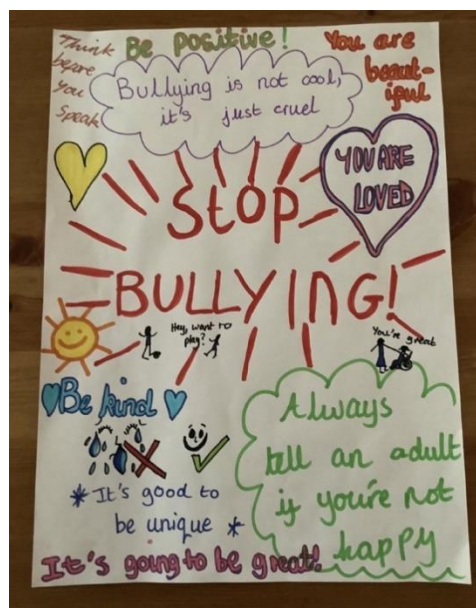 Think
before
you
speak
Be positive!
You are
beaut-
iful
Bullying is not cool,
it's just cruel
YOU ARE
LOVED
StOP
BULLYING!
Hey, want to
play?
You're great
Be kind
Always
tell an adult
if you're not
happy
*It's good to
be unique *
It's going to be great!